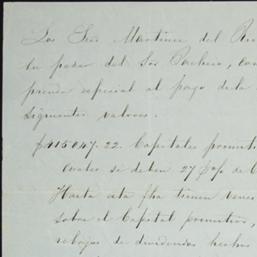 Los Srēs Martinez del Rio
en poder del Sōr Pacheco, con
prenda especial al pago de la
siguientes valores.
$415.047.22. Capitales primiti
cuales se deben 27 p% de
Hasta esta fha tienen venci
sobre el Capital primitivo,
rebajas de dividendos hechos